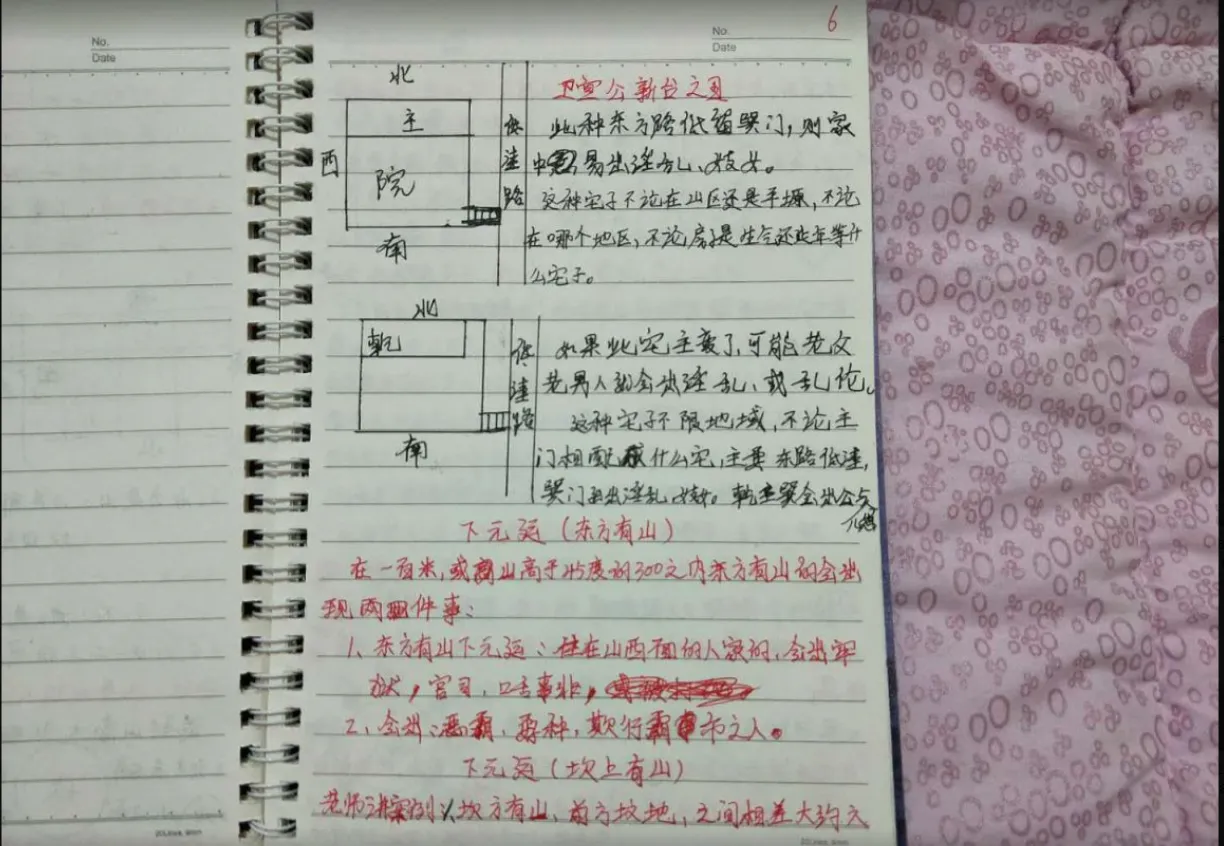 No.
Date
No.
Date
6
北
主
西
院
南
低洼路
卫宣公新台之图
此种东方路低洼巽门,则家
中易出淫乱、妓女。
这种宅子不论在山区还是平塬,不论
在哪个地区,不论房子是生气还是延年等什
么宅子。
北
乾
南
低洼路
如果此宅主变了,可能老女
老男人的会出淫乱、或乱伦。
这种宅子不限地域,不论主
门相配成什么宅,主要东路低洼,
巽门再出淫乱妓女。乾主巽会出公与
儿媳
下元运(东方有山)
在一百米,或山高于45度的300之内东方有山的会出
现两件事:
1、东方有山下元运:住在山西面的人家的,会出牢
狱,官司,口舌事非,
2、会出:恶霸,孬种,欺行霸市之人。
下元运(坎上有山)
老师讲案例:坎方有山,前方坟地,之间相差大约六